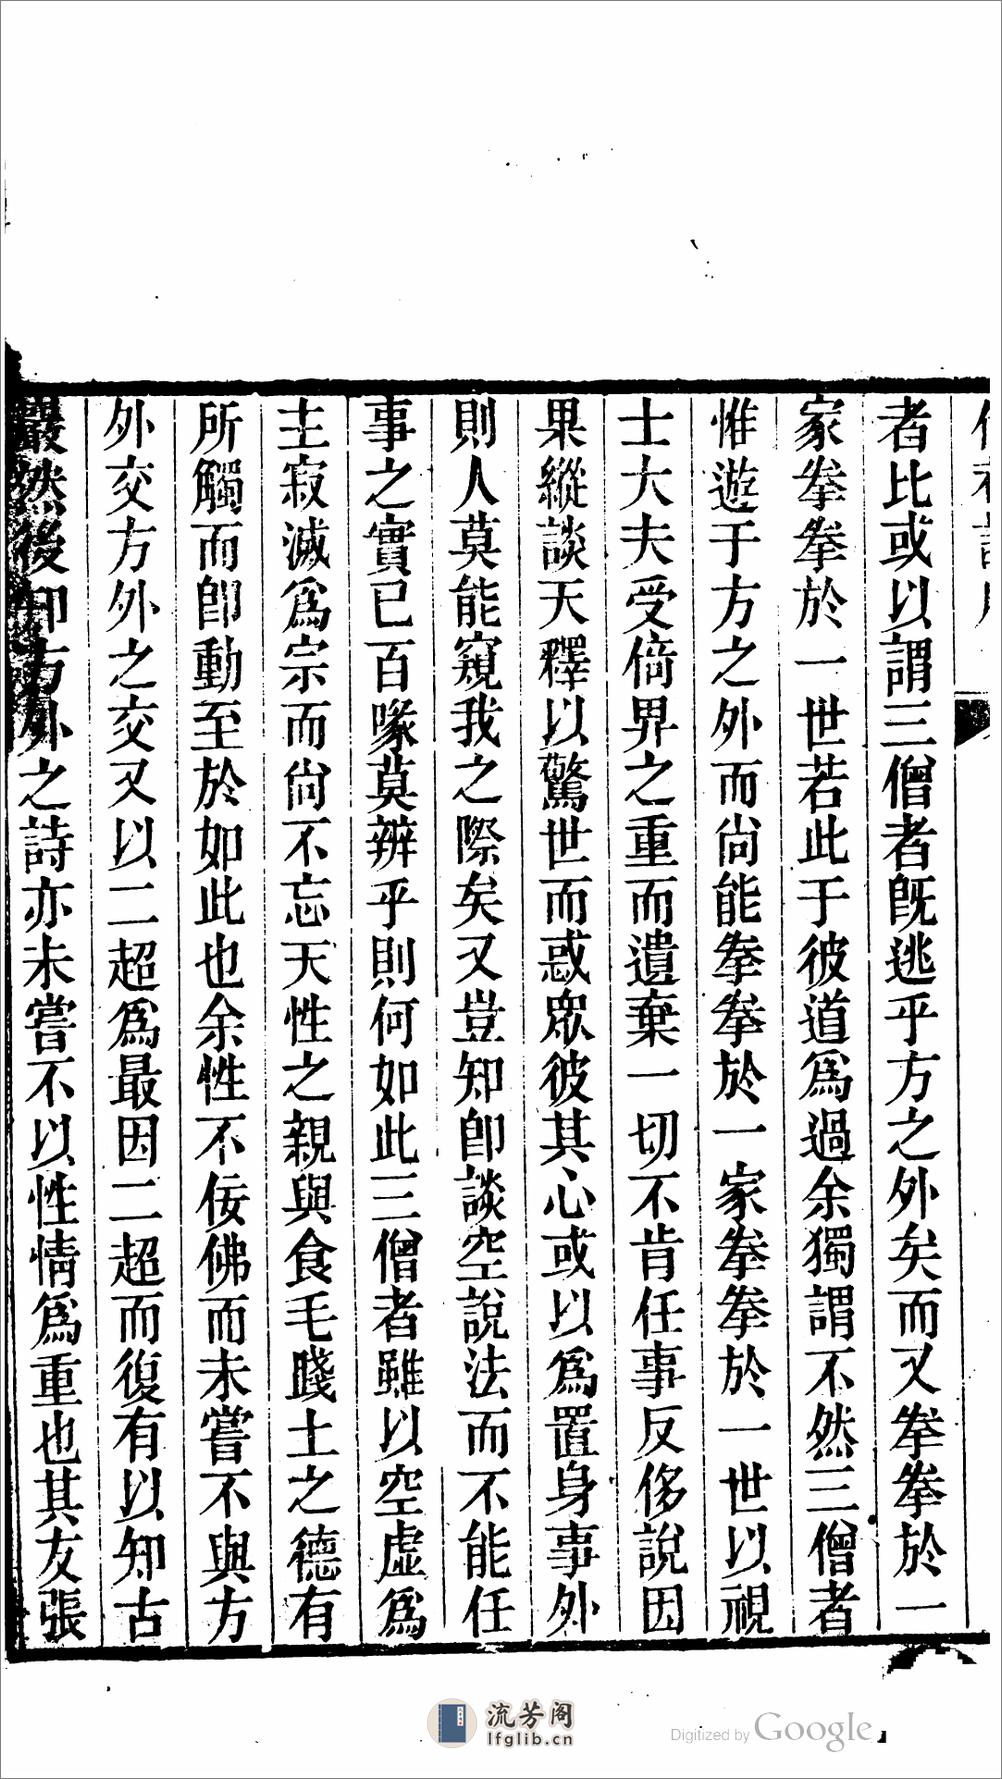 者比或以謂三僧者旣逃乎方之外矣而又拳拳於一
家拳拳於一世若此于彼道爲過余獨謂不然三僧者
惟遊于方之外而尙能拳拳於一家拳拳於一世以視
士大夫受倚畀之重而遺棄一切不肯任事反侈說因
果縱談天釋以驚世而惑衆彼其心或以爲置身事外
則人莫能窺我之際矣又豈知卽談空說法而不能任
事之實已百喙莫辨乎則何如此三僧者雖以空虛爲
主寂滅爲宗而尙不忘天性之親與食毛踐土之德有
所觸而卽動至於如此也余性不佞佛而未嘗不與方
外交方外之交又以二超爲最因二超而復有以知古
巖然後知方外之詩亦未嘗不以性情爲重也其友張
流芳阁
lfglib.cn
Digitized by Google